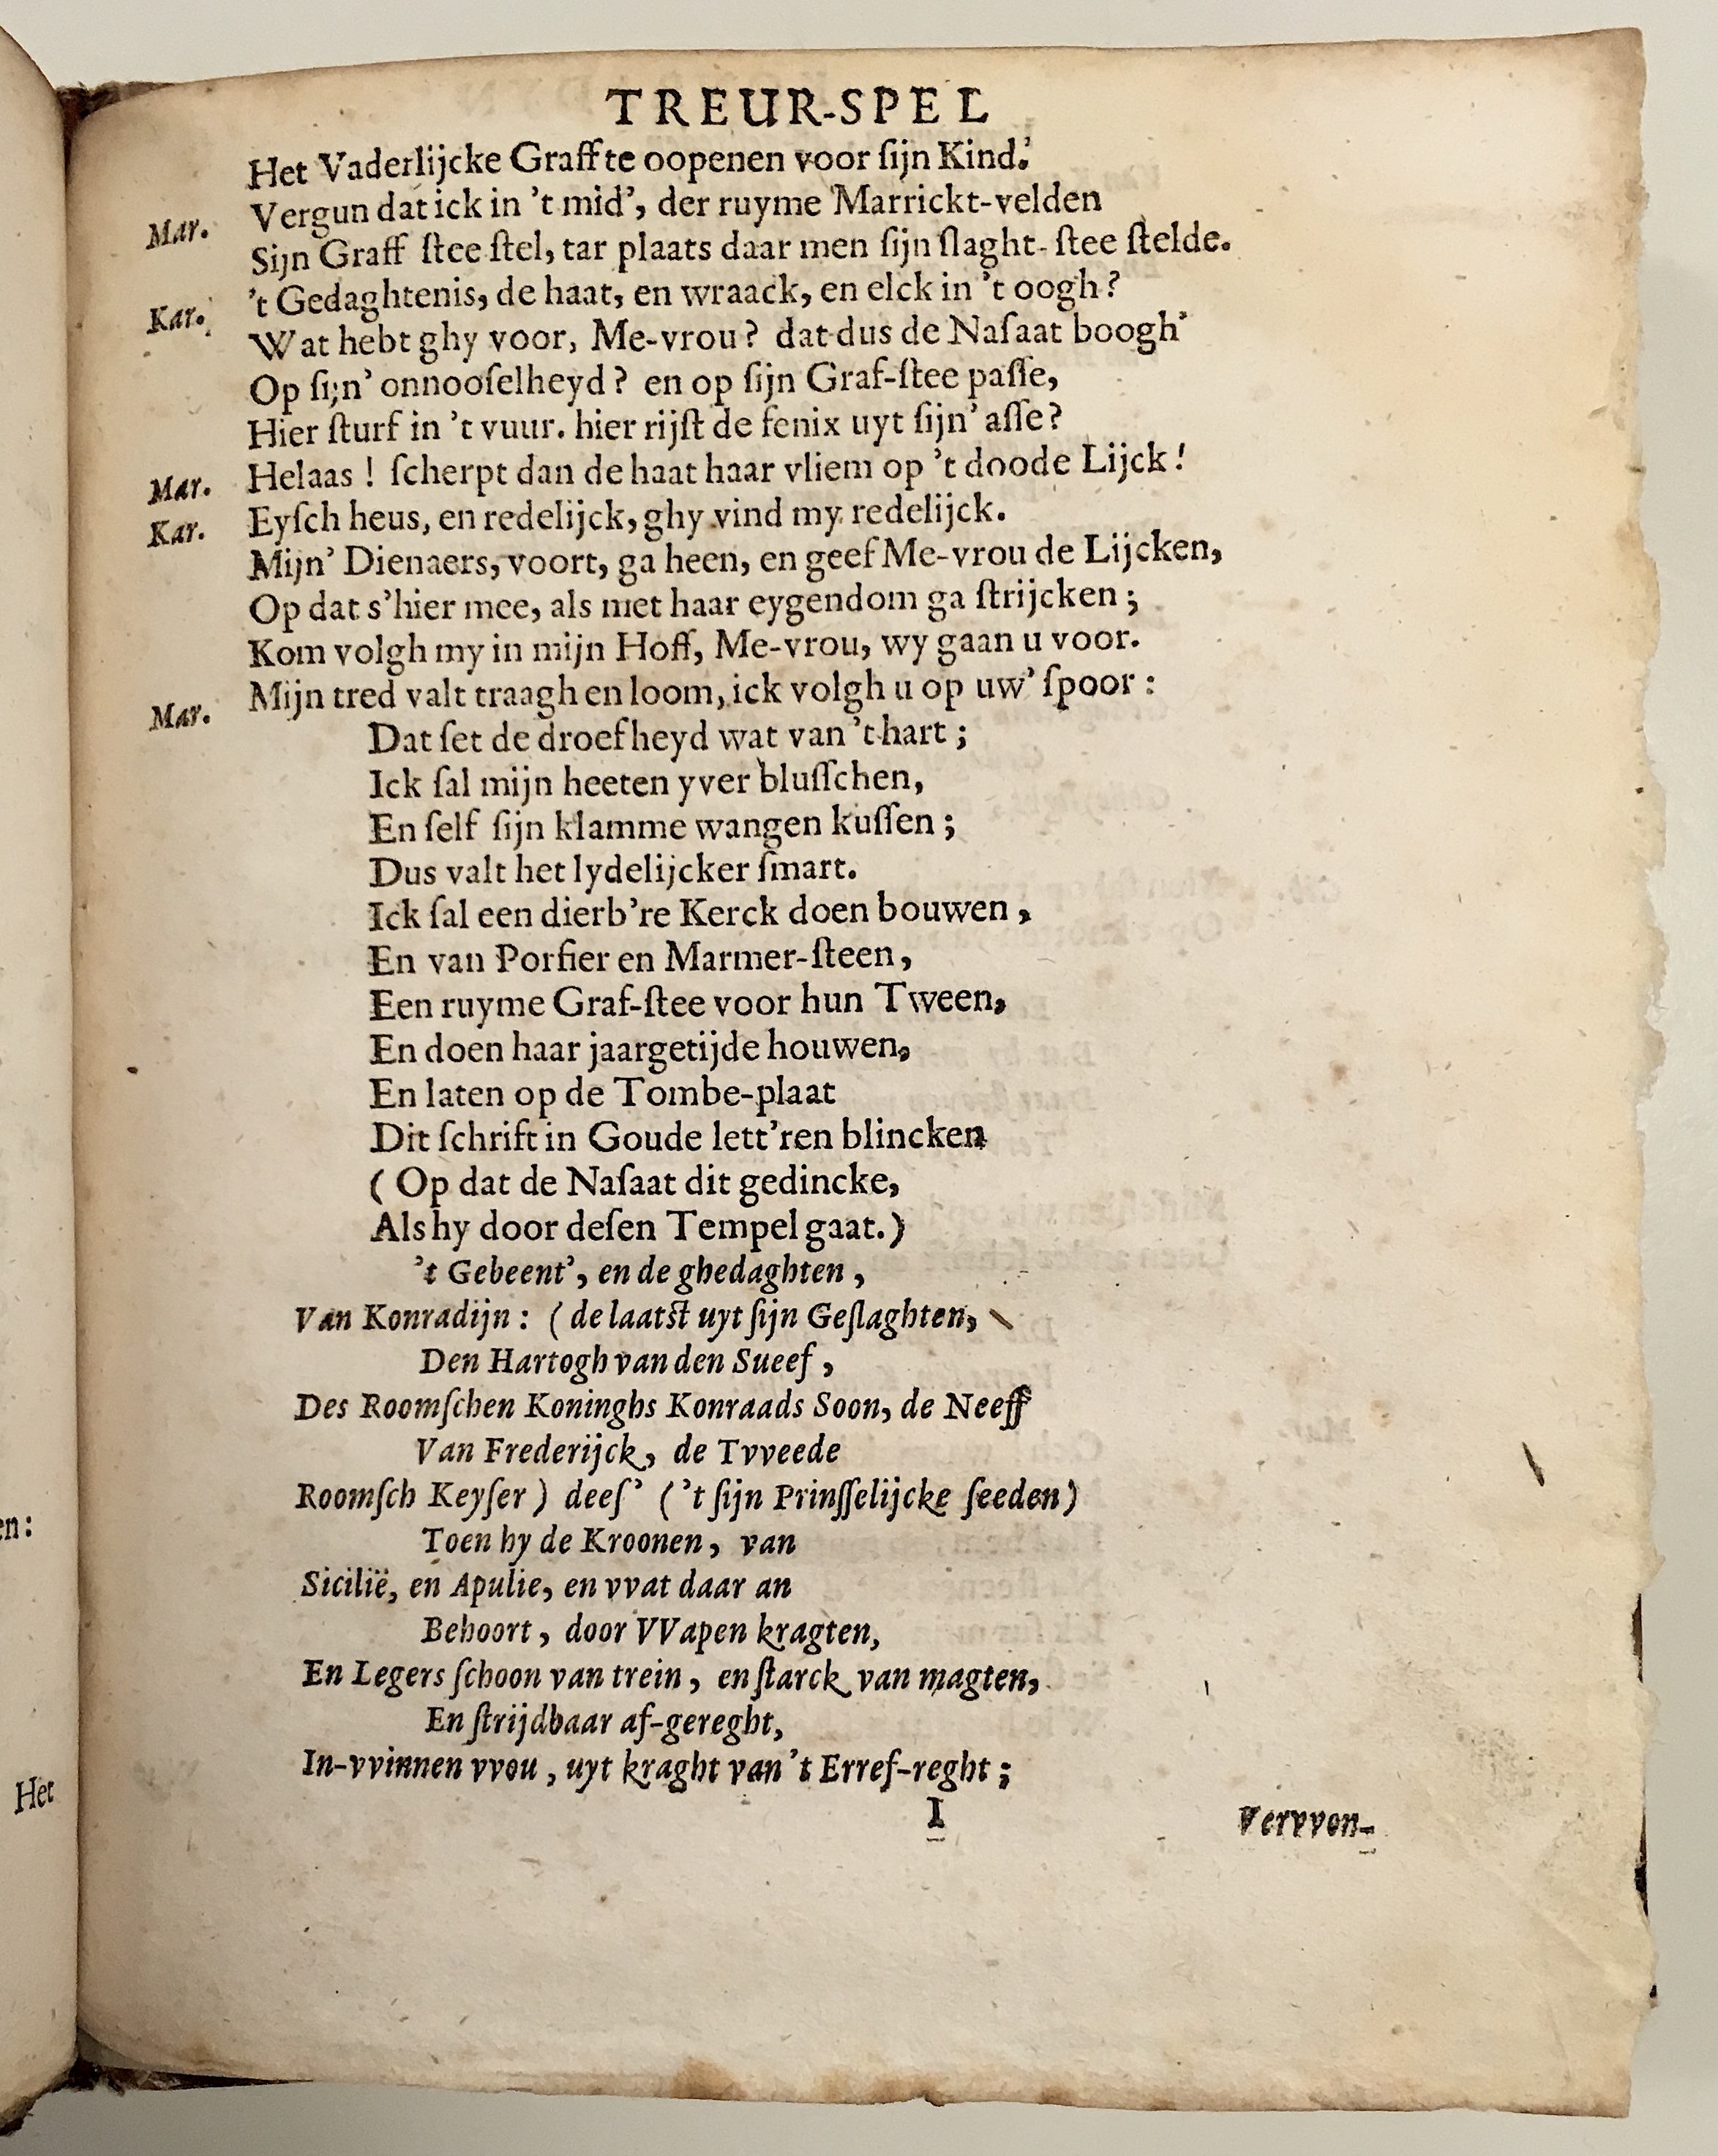 TREUR-SPEL
Het Vaderlijcke Graff te oopenen voor ſijn Kind.'
Mar. Vergun dat ick in 't mid', der ruyme Marrickt-velden
Sijn Graff ſtee ſtel, tar plaats daar men ſijn ſlaght-ſtee ſtelde.
Kar. 't Gedaghtenis, de haat, en wraack, en elck in 't oogh?
Wat hebt ghy voor, Me-vrou? dat dus de Naſaat boogh'
Op ſijn' onnooſelheyd? en op ſijn Graf-ſtee paſſe,
Hier ſturf in 't vuur. hier rijſt de fenix uyt ſijn' aſſe?
Mar. Helaas! ſcherpt dan de haat haar vliem op 't doode Lijck!
Kar. Eyſch heus, en redelijck, ghy vind my redelijck.
Mijn' Dienaers, voort, ga heen, en geef Me-vrou de Lijcken,
Op dat s'hier mee, als met haar eygendom ga ſtrijcken;
Kom volgh my in mijn Hoff, Me-vrou, wy gaan u voor.
Mar. Mijn tred valt traagh en loom, ick volgh u op uw' ſpoor:
Dat ſet de droefheyd wat van 't hart;
Ick ſal mijn heeten yver bluſſchen,
En ſelf ſijn klamme wangen kuſſen;
Dus valt het lydelijcker ſmart.
Ick ſal een dierb're Kerck doen bouwen,
En van Porfier en Marmer-ſteen,
Een ruyme Graf-ſtee voor hun Tween,
En doen haar jaargetijde houwen,
En laten op de Tombe-plaat
Dit ſchrift in Goude lett'ren blincken
(Op dat de Naſaat dit gedincke,
Als hy door deſen Tempel gaat.)
't Gebeent', en de ghedaghten,
Van Konradijn: (de laatſt uyt ſijn Geſlaghten,
Den Hartogh van den Sueef,
Des Roomſchen Koninghs Konraads Soon, de Neeff
Van Frederijck, de Tvveede
Roomſch Keyſer) deeſ' ('t ſijn Prinſſelijcke ſeeden)
Toen hy de Kroonen, van
Sicilië, en Apulie, en vvat daar an
Behoort, door VVapen kragten,
En Legers ſchoon van trein, en ſtarck van magten,
En ſtrijdbaar af-gereght,
In-vvinnen vvou, uyt kraght van 't Erref-reght;
I
Vervvon-
en:
Het